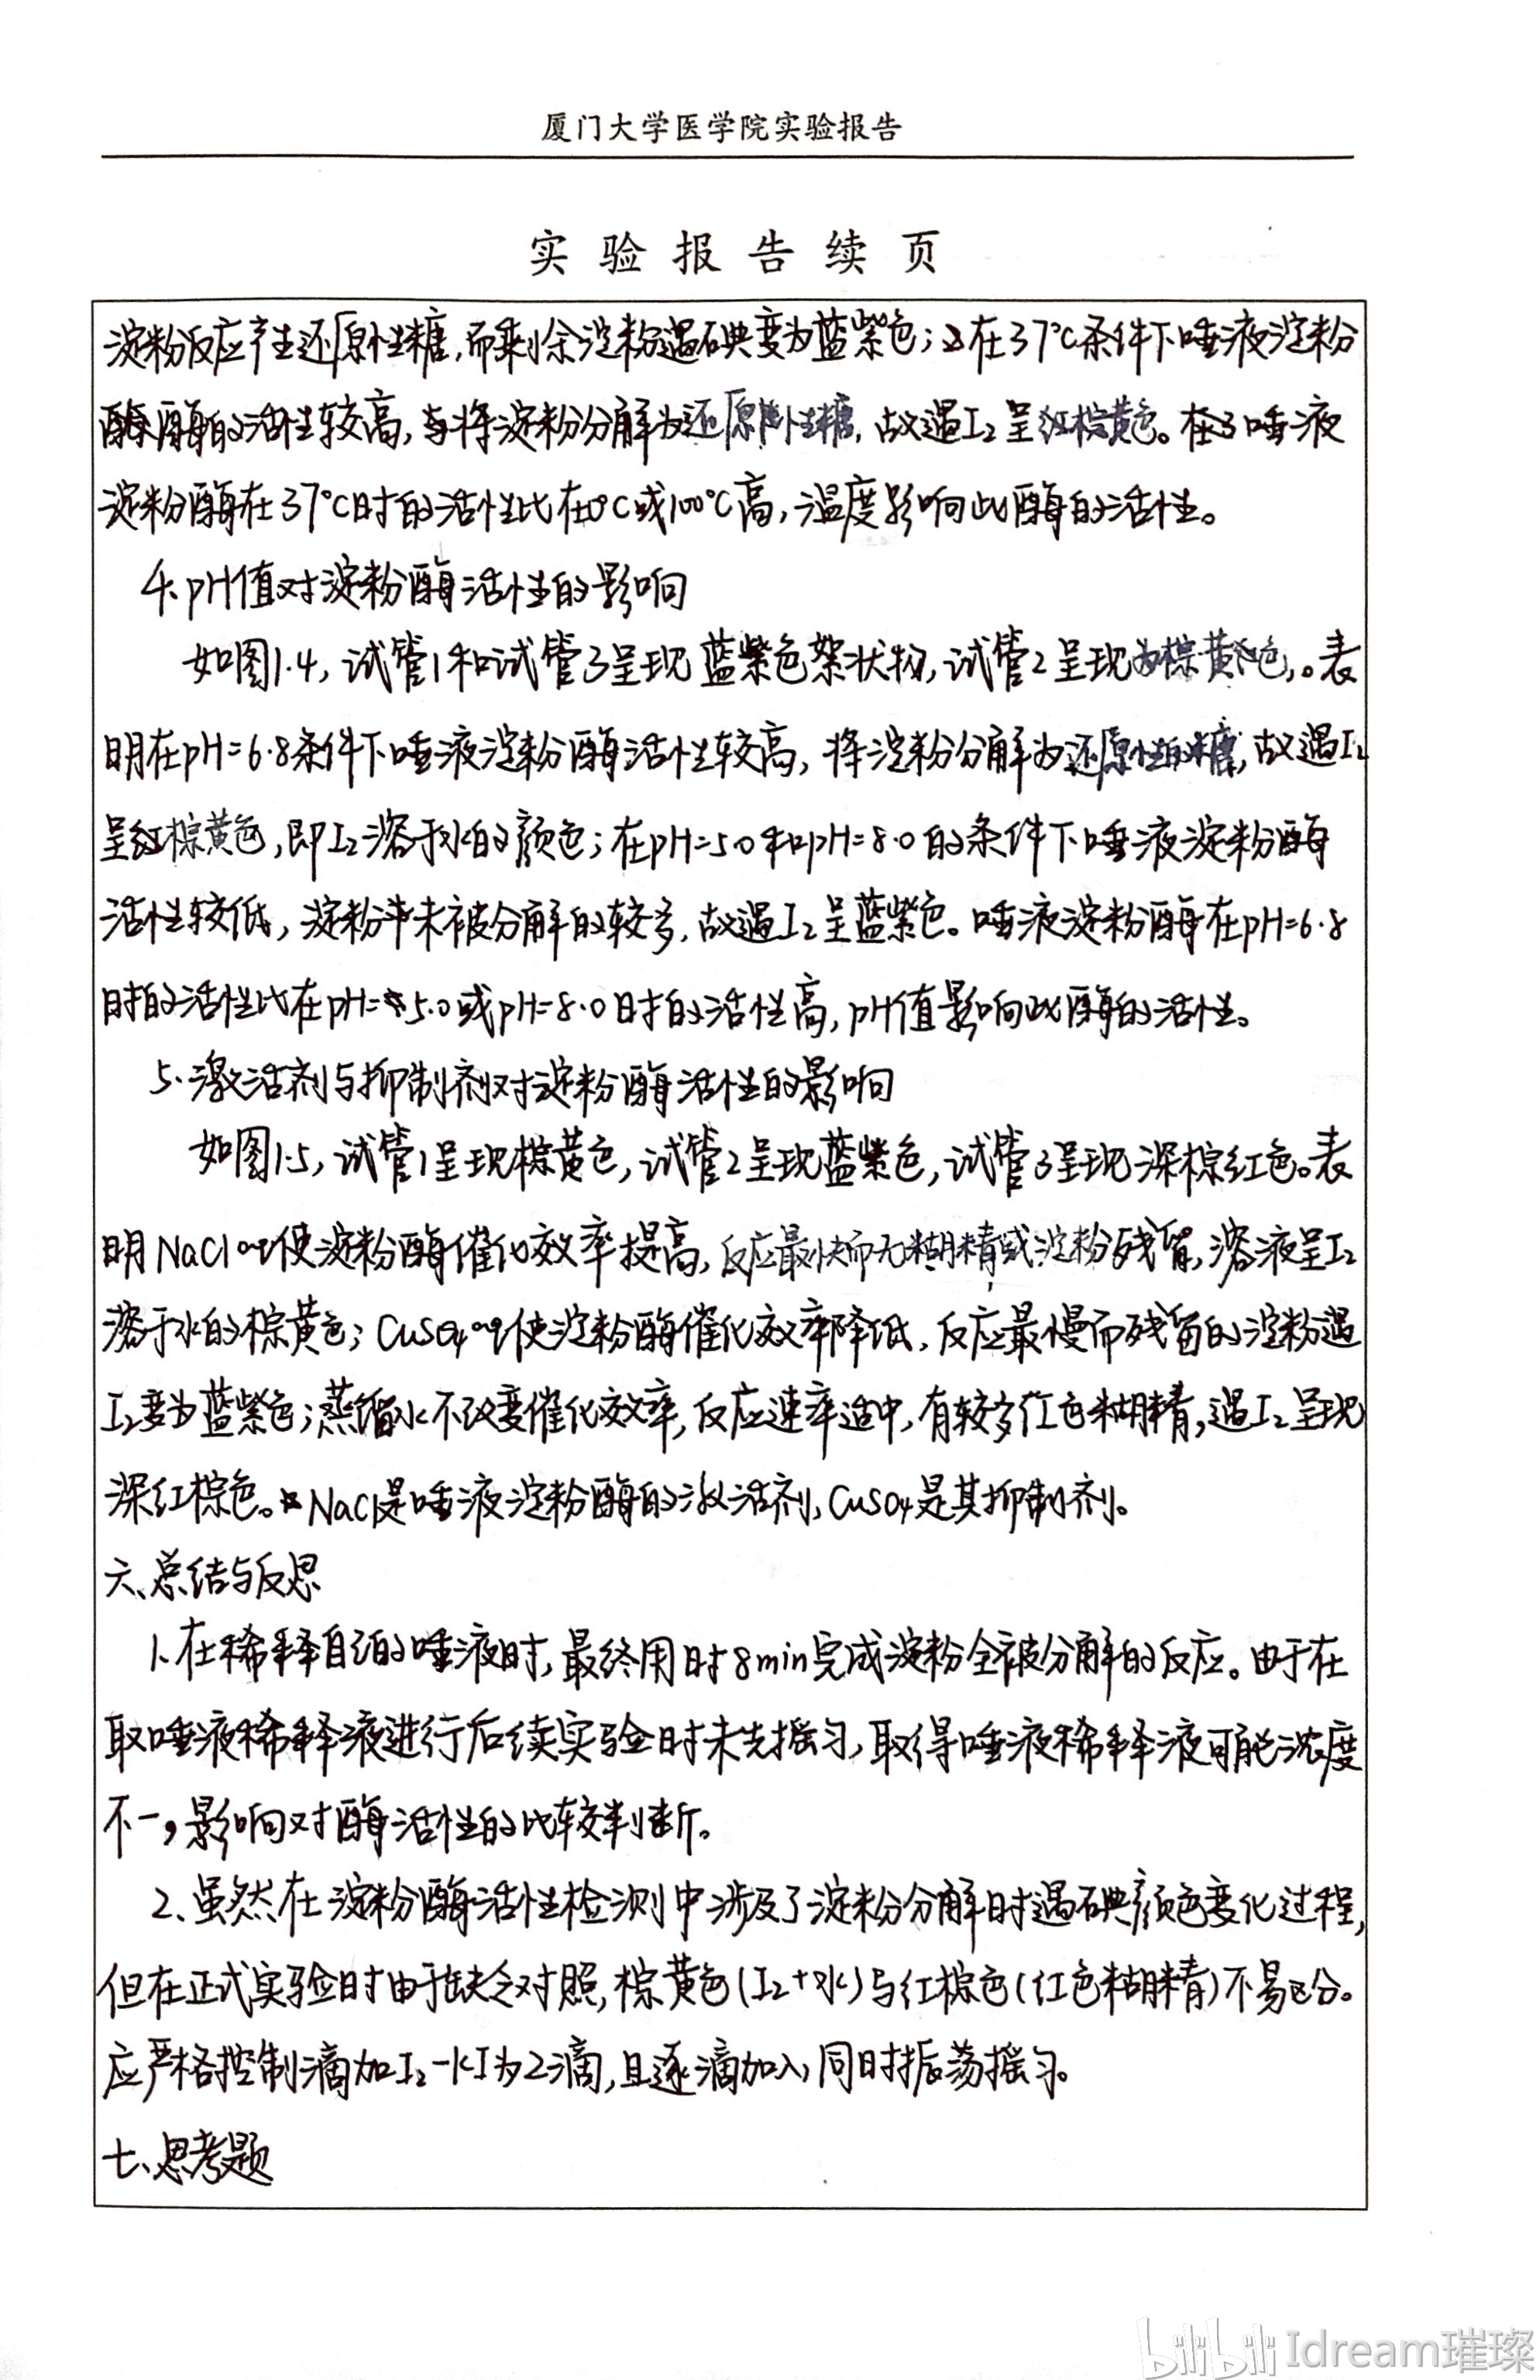 厦门大学医学院实验报告
实验报告续页
淀粉反应产生还原性糖,而剩余淀粉遇碘变为蓝紫色;在37℃条件下唾液淀粉
酶的活性较高,将淀粉分解为还原性糖,故遇I₂呈棕黄色。唾液
淀粉酶在37℃时的活性比在0℃或100℃高,温度影响此酶的活性。
4.pH值对淀粉酶活性的影响
如图1.4,试管1和试管3呈现蓝紫色絮状物,试管2呈现棕黄色。表
明在pH=6.8条件下唾液淀粉酶活性较高,将淀粉分解为还原性糖,故遇I₂
呈棕黄色,即I₂溶于水的颜色;在pH=5.0和pH=8.0的条件下唾液淀粉酶
活性较低,淀粉未被分解的较多,故遇I₂呈蓝紫色。唾液淀粉酶在pH=6.8
时的活性比在pH=5.0或pH=8.0时的活性高,pH值影响此酶的活性。
5.激活剂与抑制剂对淀粉酶活性的影响
如图1.5,试管1呈现棕黄色,试管2呈现蓝紫色,试管3呈现深棕红色。表
明NaCl aq使淀粉酶催化效率提高,反应最快而无糊精或淀粉残留,溶液呈I₂
溶于水的棕黄色;CuSO₄ aq使淀粉酶催化效率降低,反应最慢而残留的淀粉遇
I₂变为蓝紫色;蒸馏水不改变催化效率,反应速率适中,有较多红色糊精,遇I₂呈现
深红棕色。NaCl是唾液淀粉酶的激活剂,CuSO₄是其抑制剂。
六、总结与反思
1.在稀释自己的唾液时,最终用时8min完成淀粉全被分解的反应。由于在
取唾液稀释液进行后续实验时未先摇匀,取得唾液稀释液可能浓度
不一,影响对酶活性的比较判断。
2.虽然在淀粉酶活性检测中涉及了淀粉分解时遇碘颜色变化过程,
但在正式实验时由于缺乏对照,棕黄色(I₂+水)与红棕色(红色糊精)不易区分。
应严格控制滴加I₂-KI为2滴,且逐滴加入,同时振荡摇匀。
七、思考题
bilibili Idream璀璨